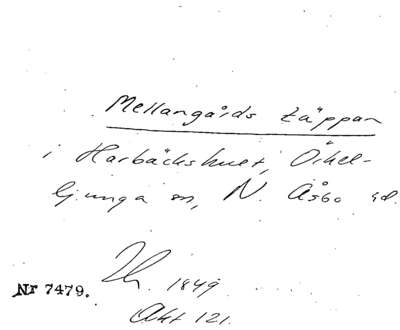 Mellangårds täppan
i Harbäckshult, Örkel-
ljunga sn, N. Åsbo hd.
1849
Nr 7479.
Akt 121.